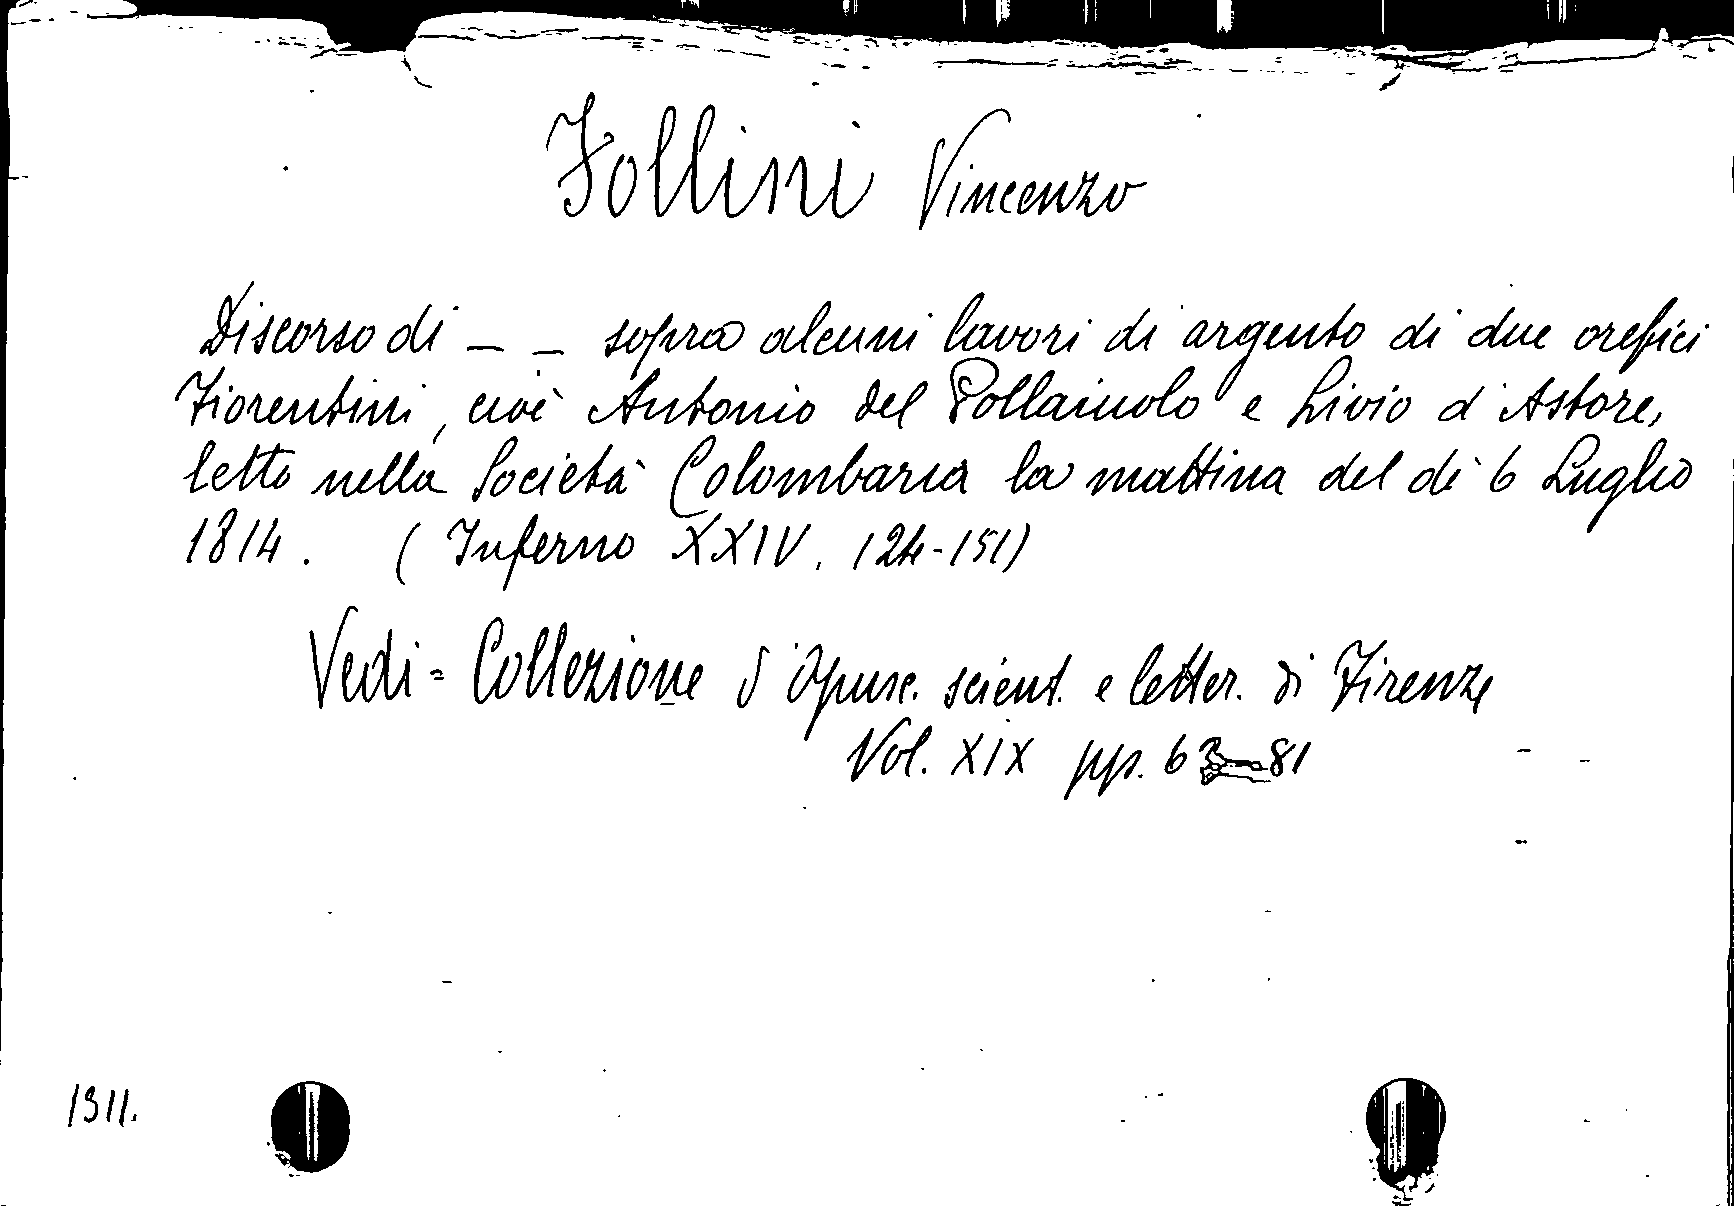 Follini Vincenzo
Discorso di _ _ sopra alcuni lavori di argento di due orefici
Fiorentini, cioè Antonio del Pollaiuolo e Livio d'Astore,
letto nella Società Colombaria la mattina del dì 6 Luglio
1814. ( Inferno XXIV. 124-151)
Vedi = Collezione d'Opusc. scient. e letter. di Firenze
Vol. XIX pp. 63-81
1311.